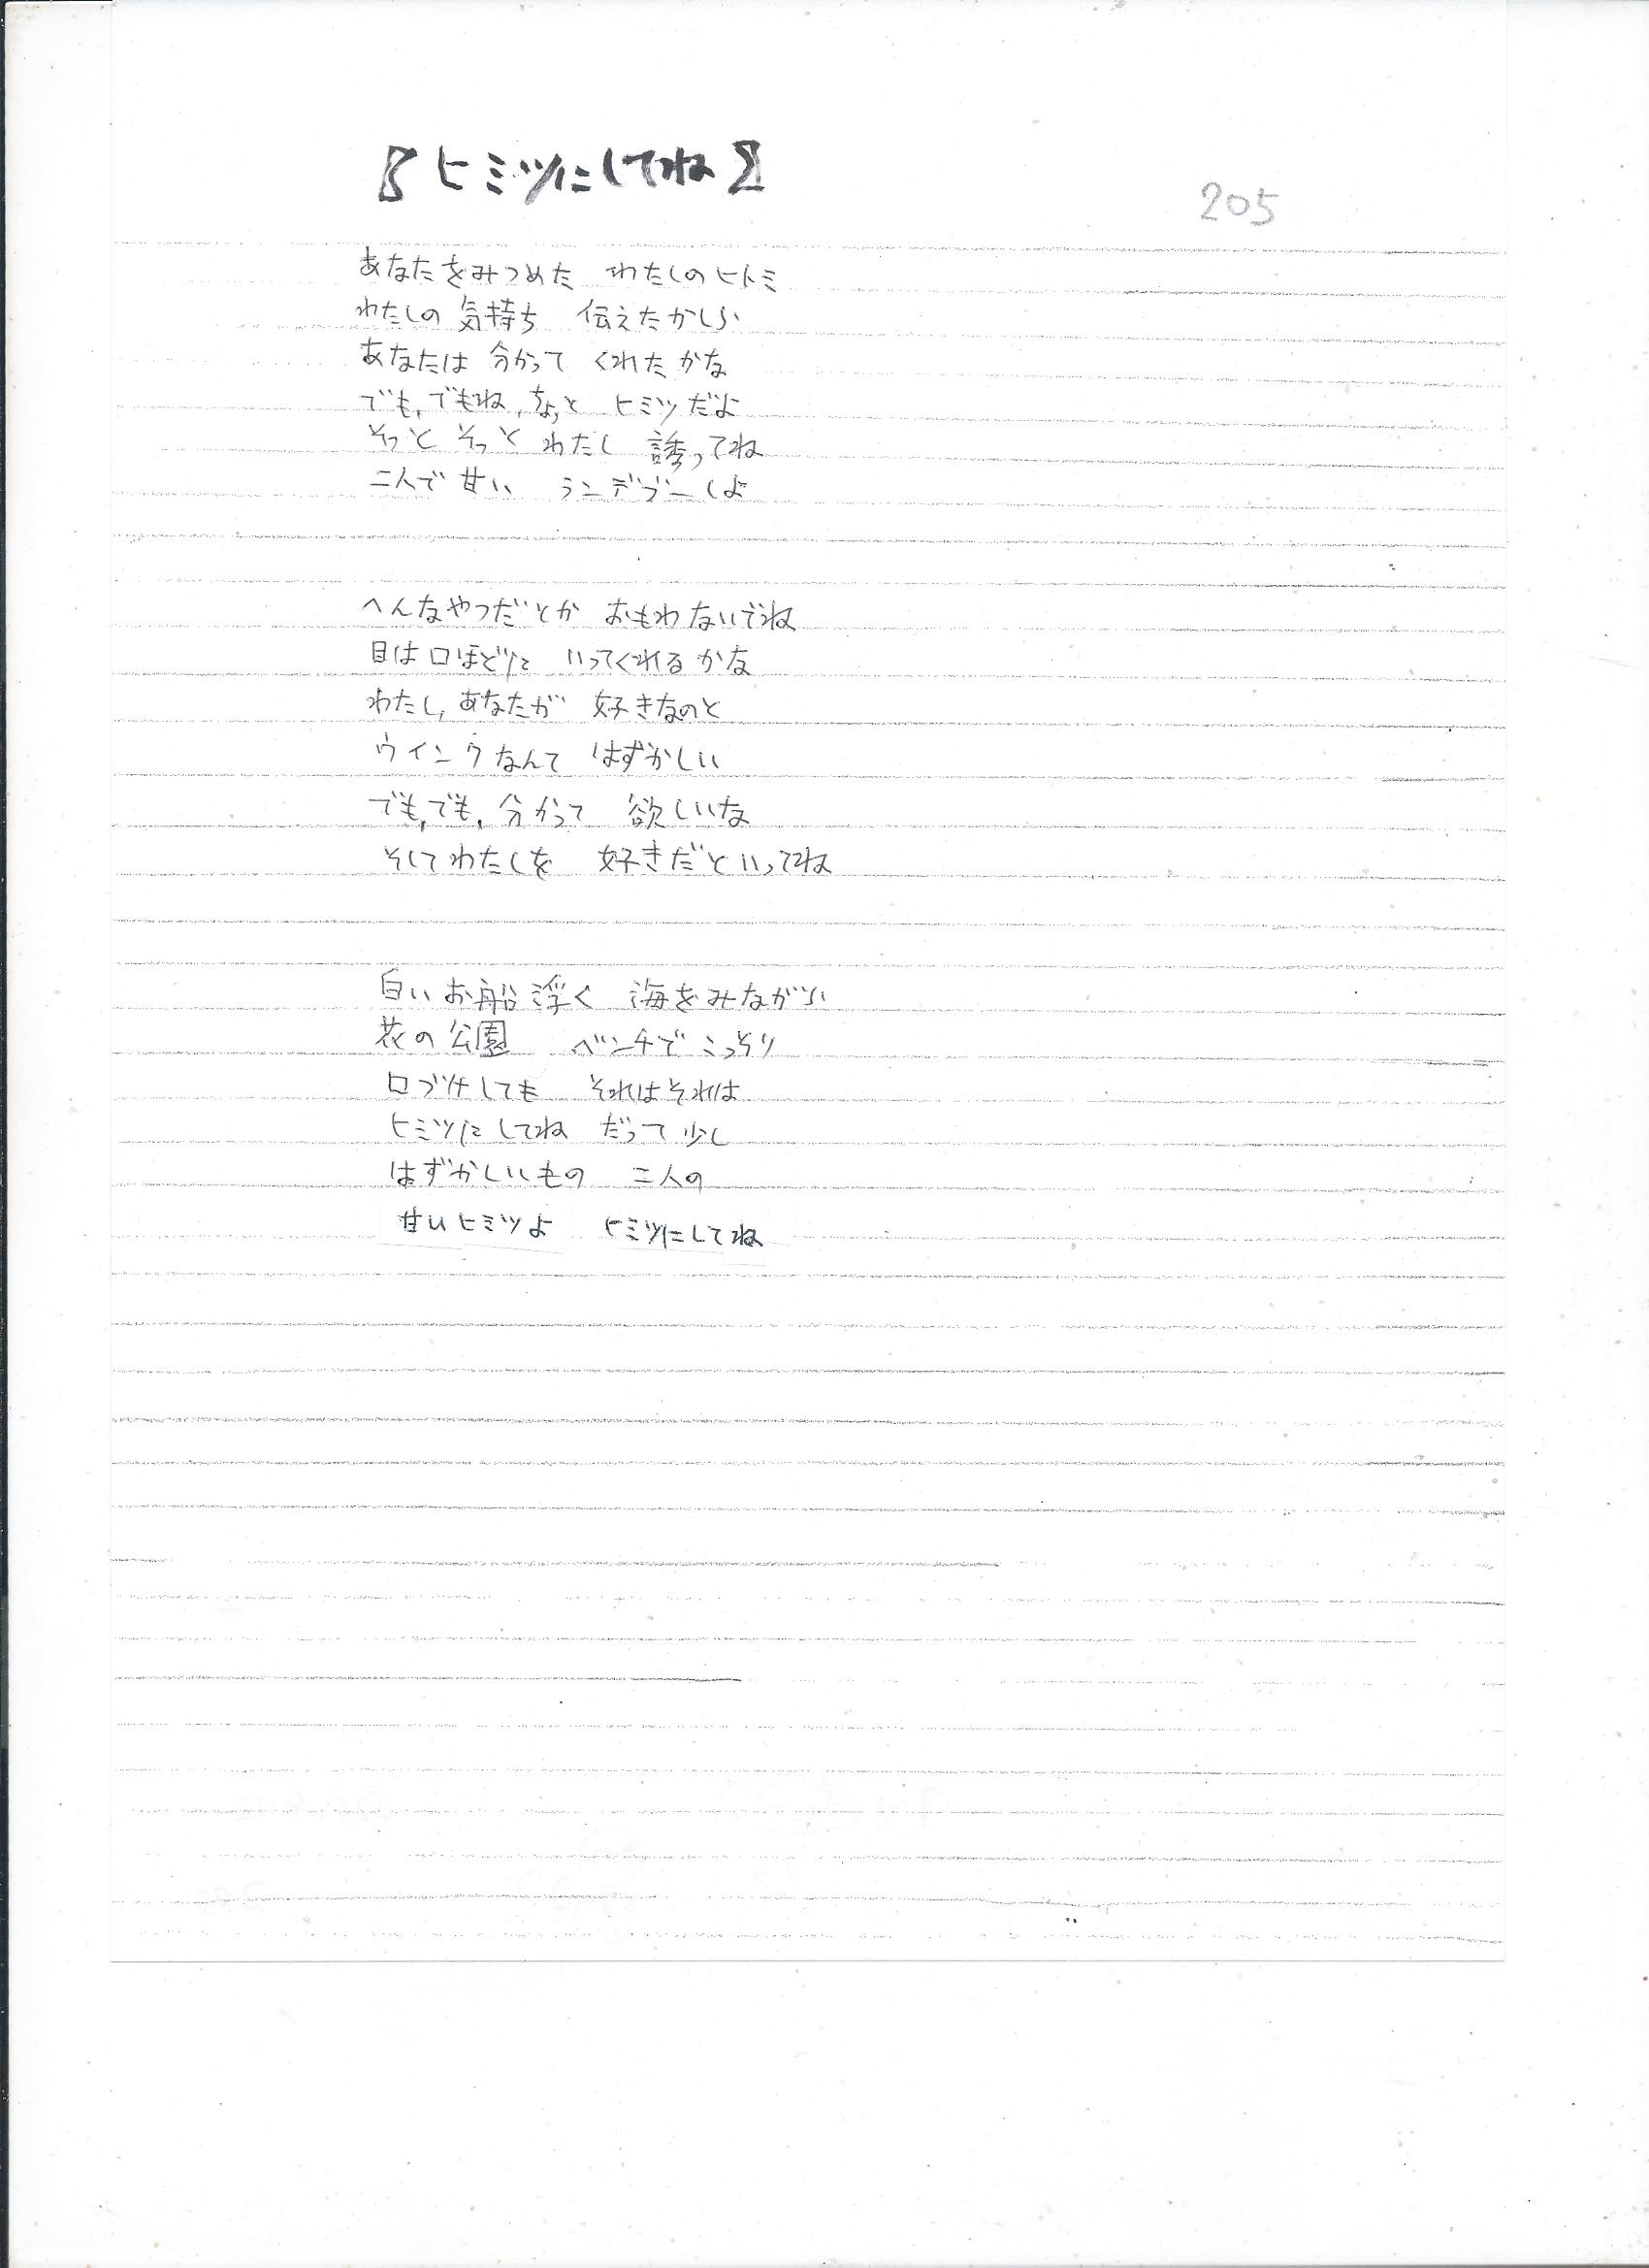 【ヒミツにしてね】
205
あなたをみつめた　わたしのヒトミ
わたしの気持ち　伝えたかしら
あなたは分かって　くれたかな
でも、でもね、ちょっと　ヒミツだよ
そっと　そっと　わたし　誘ってね
二人で甘い　ランデブーしよ
へんなやつだとか　おもわないでね
目は口ほどに　いってくれるかな
わたし、あなたが　好きなのと
ウインクなんて　はずかしい
でも、でも、分かって　欲しいな
そしてわたしを　好きだといってね
白いお船浮く　海をみながら
花の公園　ベンチでこっそり
口づけしても　それはそれは
ヒミツにしてね　だって少し
はずかしいもの　二人の
甘いヒミツよ　ヒミツにしてね